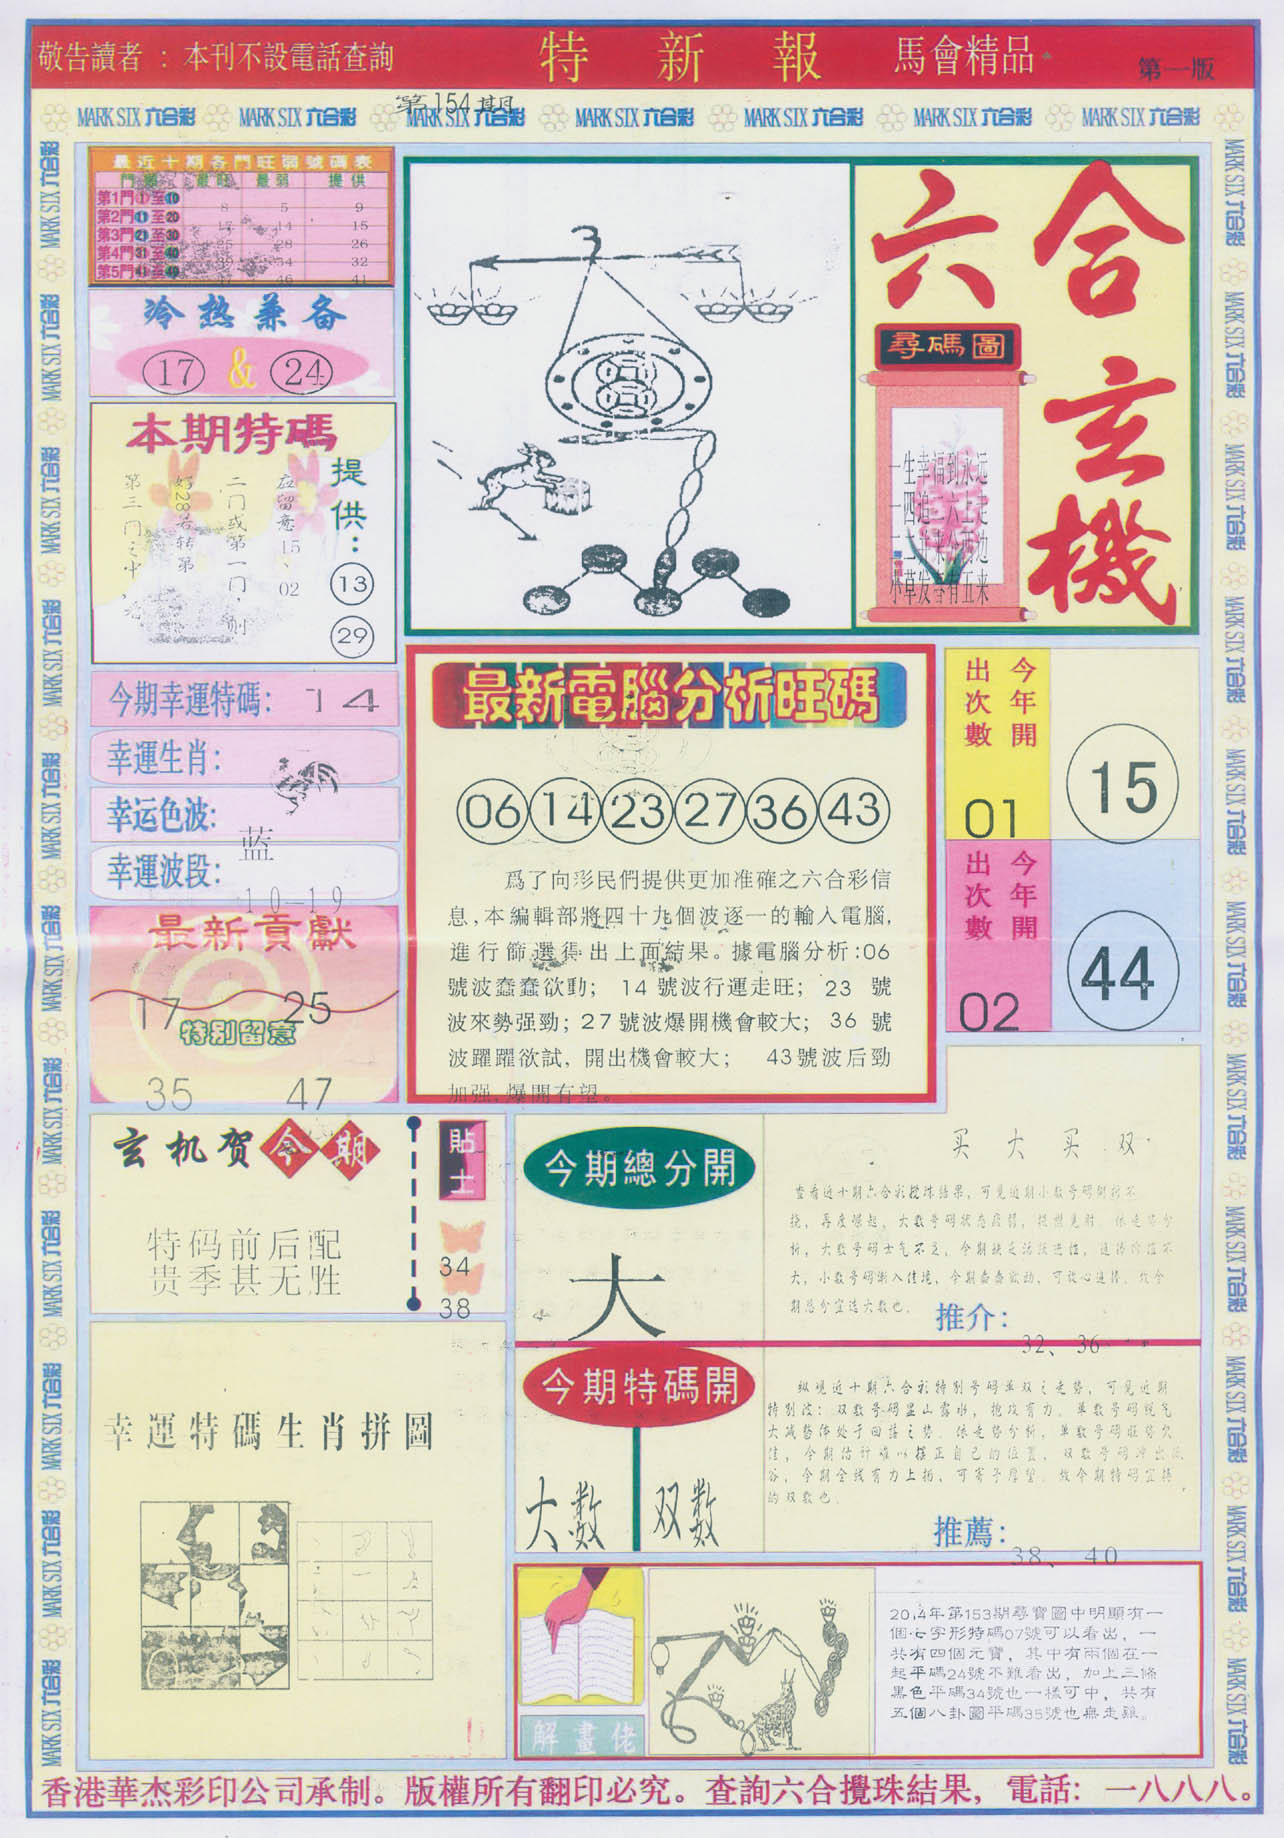 敬告讀者 : 本刊不設電話查詢
特 新 報
馬會精品
第一版
第154期
MARK SIX 六合彩 MARK SIX 六合彩 MARK SIX 六合彩 MARK SIX 六合彩 MARK SIX 六合彩 MARK SIX 六合彩 MARK SIX 六合彩
最近十期各門旺弱號碼表
最弱 提供
第1門①至⑩ 8 5 9
第2門⑪至⑳ 14 15
第3門㉑至㉚ 25 28 26
第4門㉛至㊵ 34 32
第5門㊶至㊾ 47 46 41
冷热兼备
17 & 24
本期特碼
提供:
应留意15、02
二门或第一门,则
好28若转第
第三门之中
13
29
今期幸運特碼: 14
幸運生肖:
幸运色波: 蓝
幸運波段: 10—19
最新貢獻
17 25
特别留意
35 47
3
六合玄機
尋碼圖
一生幸福到永远
小草发春有五来
最新電腦分析旺碼
06 14 23 27 36 43
爲了向彩民們提供更加准確之六合彩信
息,本編輯部將四十九個波逐一的輸入電腦,
進行篩選得出上面結果。據電腦分析:06
號波蠢蠢欲動; 14 號波行運走旺; 23 號
波來勢强勁; 27 號波爆開機會較大; 36 號
波躍躍欲試, 開出機會較大; 43號波后勁
加强,爆開有望。
今年開
出次數
01
15
今年開
出次數
02
44
玄机贺今期
特码前后配
贵季甚无胜
貼士
34
38
今期總分開
大
买 大 买 双
查看近十期六合彩搅珠结果, 可见近期小数号码开控不
挠, 再度崛起, 大数号码状态疲弱,
析, 大数号码士气不足, 今期缺乏活跃进性,
大, 小数号码渐入佳境, 今期蠢蠢欲动, 可放心追择, 故今
期总分宜选大数也。
推介:
32、36
今期特碼開
大数 双数
纵观近十期六合彩特别号码单双之走势, 可见近期
特别波: 双数号码显山露水, 抢攻有力, 单数号码锐气
大减整体处于回落之势, 依走势分析, 单数号码旺势欠
佳, 今期估计难以摆正自己的位置, 双数号码冲出低
谷, 今期全线有力上扬, 可寄予厚望, 故今期特码宜择
的双数也。
推薦:
38、40
幸運特碼生肖拼圖
解畫佬
2014年第153期尋寶圖中明顯有一
個七字形特碼07號可以看出, 一
共有四個元寶, 其中有兩個在一
起平碼24號不難看出, 加上三條
黑色平碼34號也一樣可中, 共有
五個八卦圖平碼35號也無走雞。
香港華杰彩印公司承制。版權所有翻印必究。查詢六合攪珠結果, 電話: 一八八八。